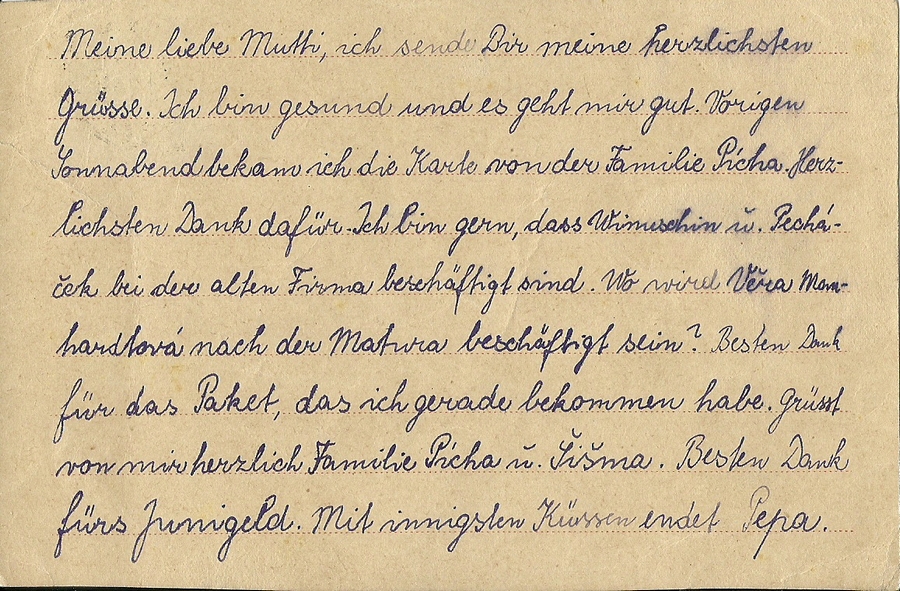 Meine liebe Mutti, ich sende Dir meine herzlichsten
Grüsse. Ich bin gesund und es geht mir gut. Vorigen
Sonnabend bekam ich die Karte von der Familie Pícha. Herz-
lichsten Dank dafür. Ich bin gern, dass u. Pechá-
ček bei der alten Firma beschäftigt sind. Wo wird Věra Man-
hardtová nach der Matura beschäftigt sein? Besten Dank
für das Paket, das ich gerade bekommen habe. Grüsst
von mir herzlich Familie Pícha u. Šišma. Besten Dank
fürs Junigeld. Mit innigsten Küssen endet Pepa.